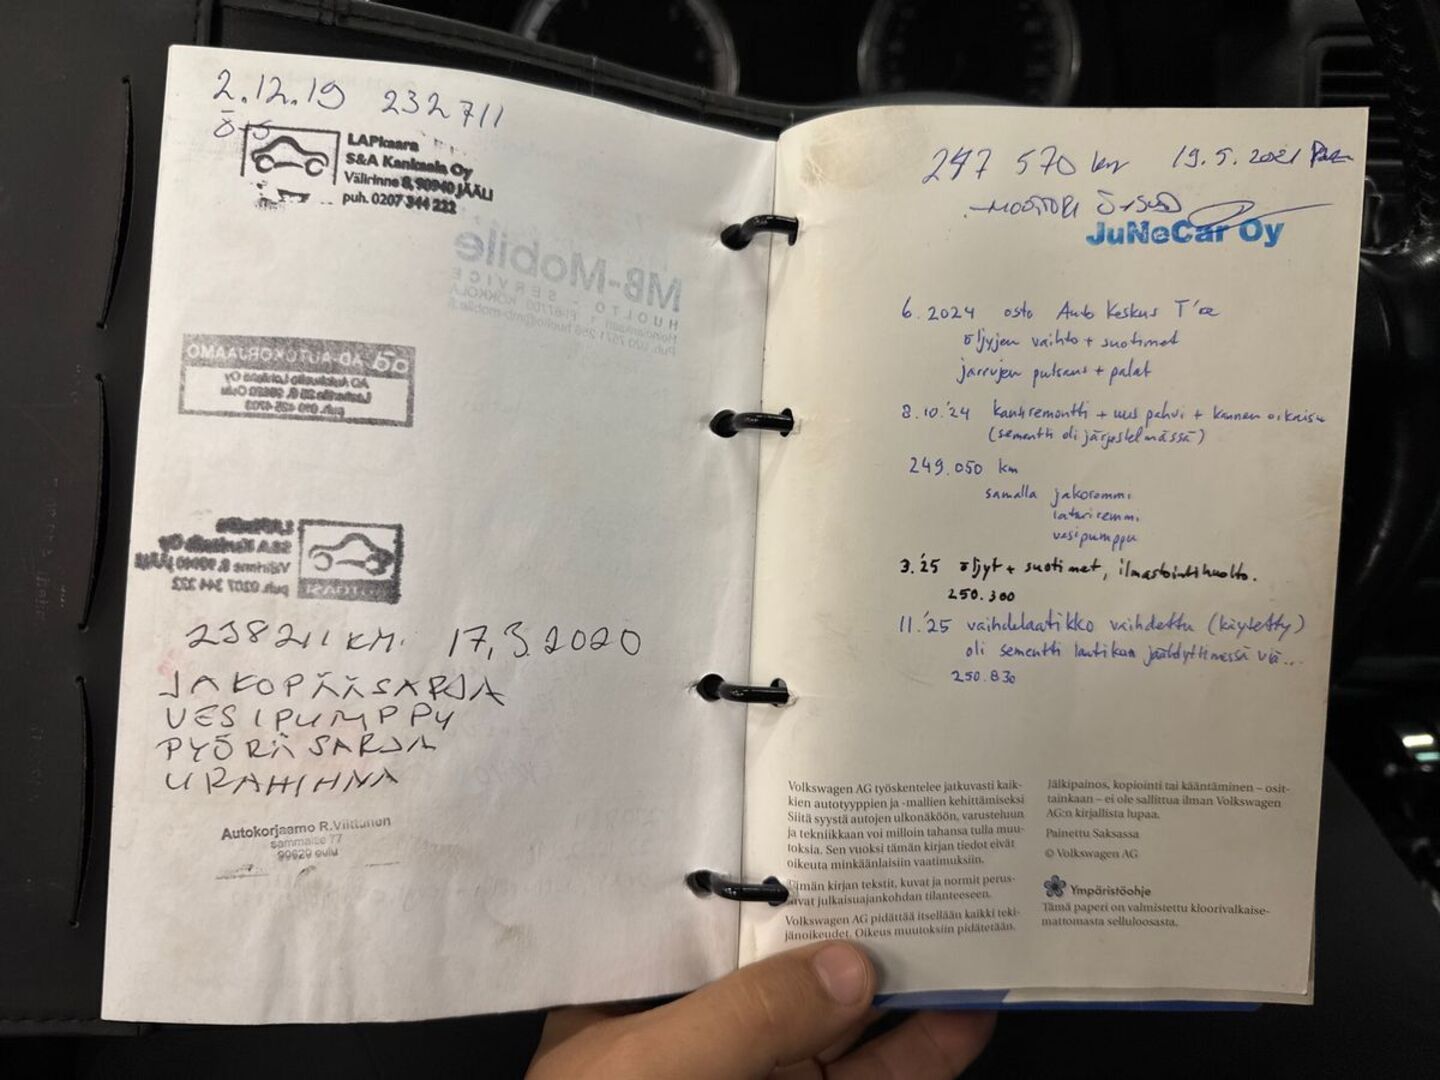 2.12.19 232711
Ö+S
LAPkaara
S&A Kankaala Oy
Välirinne 8, 90940 JÄÄLI
puh. 0207 344 222
MB-Mobile
HUOLTO - SERVICE
AD-AUTOKORJAAMO
LAPkaara
S&A Kankaala Oy
Välirinne 8, 90940 JÄÄLI
puh. 0207 344 222
238211 KM. 17,3.2020
JAKOPÄÄSARJA
VESIPUMPPY
PYÖRÄSARJA
URAHIHNA
Autokorjaamo R.Viittunen
sammaltie 77
90620 oulu
247 570 km 19.5.2021
-MOOTTORI Ö+SUOD
JuNeCar Oy
6.2024 osto Auto Keskus T:re
öljyjen vaihto + suotimet
jarrujen putsaus + palat
8.10.'24 kansiremontti + uus pahvi + kannen oikaisu
(sementti oli järjestelmässä)
249.050 km
samalla jakoremmi
laturiremmi
vesipumppu
3.'25 öljyt + suotimet, ilmastointihuolto.
250.300
11.'25 vaihdelaatikko vaihdettu (käytetty)
oli sementti laatikon jäähdyttimessä viä...
250.830
Volkswagen AG työskentelee jatkuvasti kaik-
kien autotyyppien ja -mallien kehittämiseksi
Siitä syystä autojen ulkonäköön, varusteluun
ja tekniikkaan voi milloin tahansa tulla muu-
toksia. Sen vuoksi tämän kirjan tiedot eivät
oikeuta minkäänlaisiin vaatimuksiin.
Tämän kirjan tekstit, kuvat ja normit perus-
tuvat julkaisuajankohdan tilanteeseen.
Volkswagen AG pidättää itsellään kaikki teki-
jänoikeudet. Oikeus muutoksiin pidätetään.
Jälkipainos, kopiointi tai kääntäminen – osit-
tainkaan – ei ole sallittua ilman Volkswagen
AG:n kirjallista lupaa.
Painettu Saksassa
© Volkswagen AG
Ympäristöohje
Tämä paperi on valmistettu kloorivalkaise-
mattomasta selluloosasta.